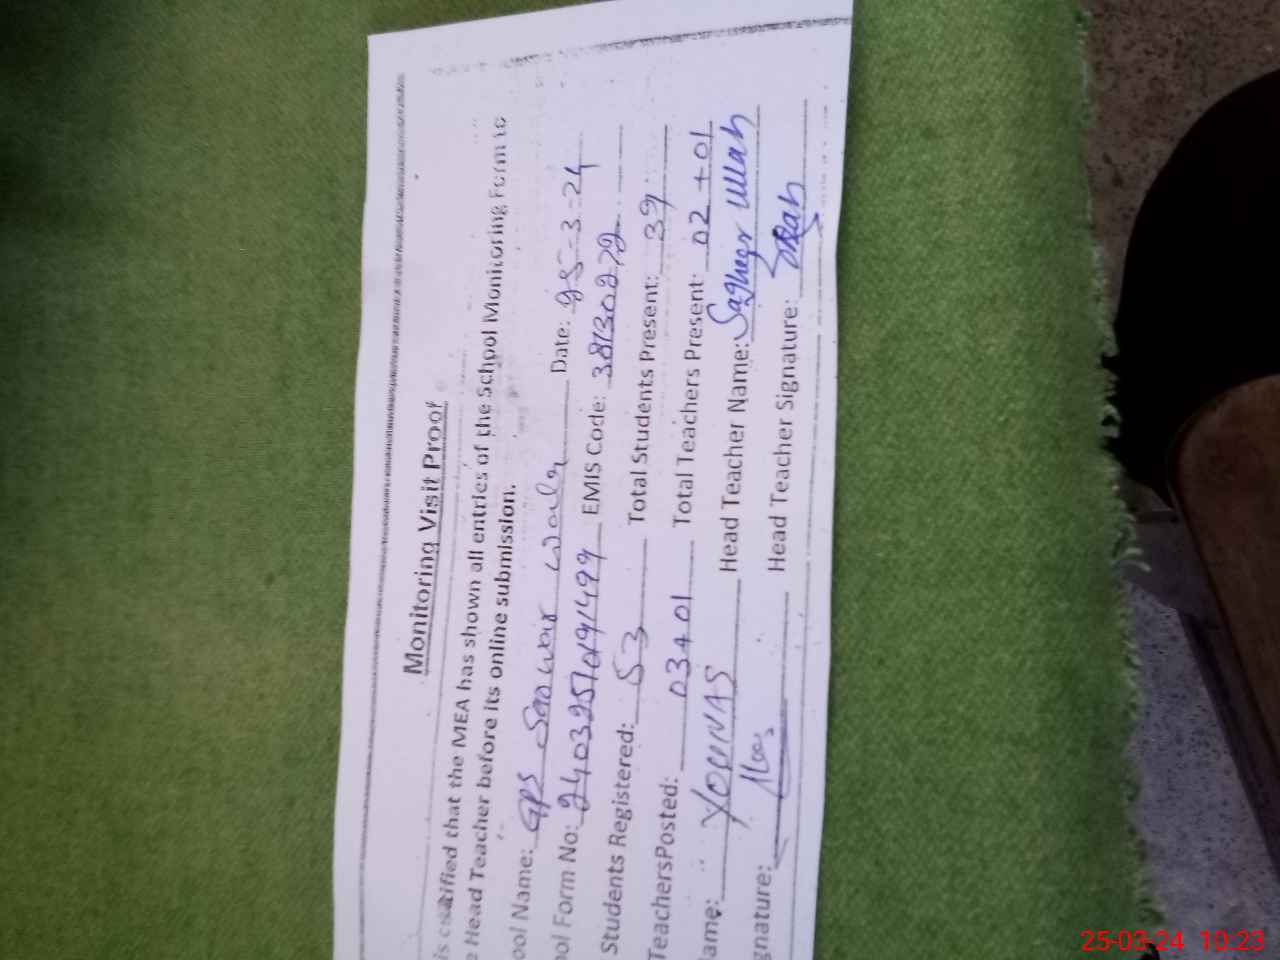 Monitoring Visit Proof
is certified that the MEA has shown all entries of the School Monitoring Form to
e Head Teacher before its online submission.
ool Name: GPS Date: 25-3-24
ool Form No: 24032510191499 EMIS Code: 38130272
Students Registered: 53 Total Students Present: 39
TeachersPosted: 03+01 Total Teachers Present: 02+01
ame: YOUNAS Head Teacher Name: Sagheer Ullah
gnature: Head Teacher Signature:
25-03-24 10:23